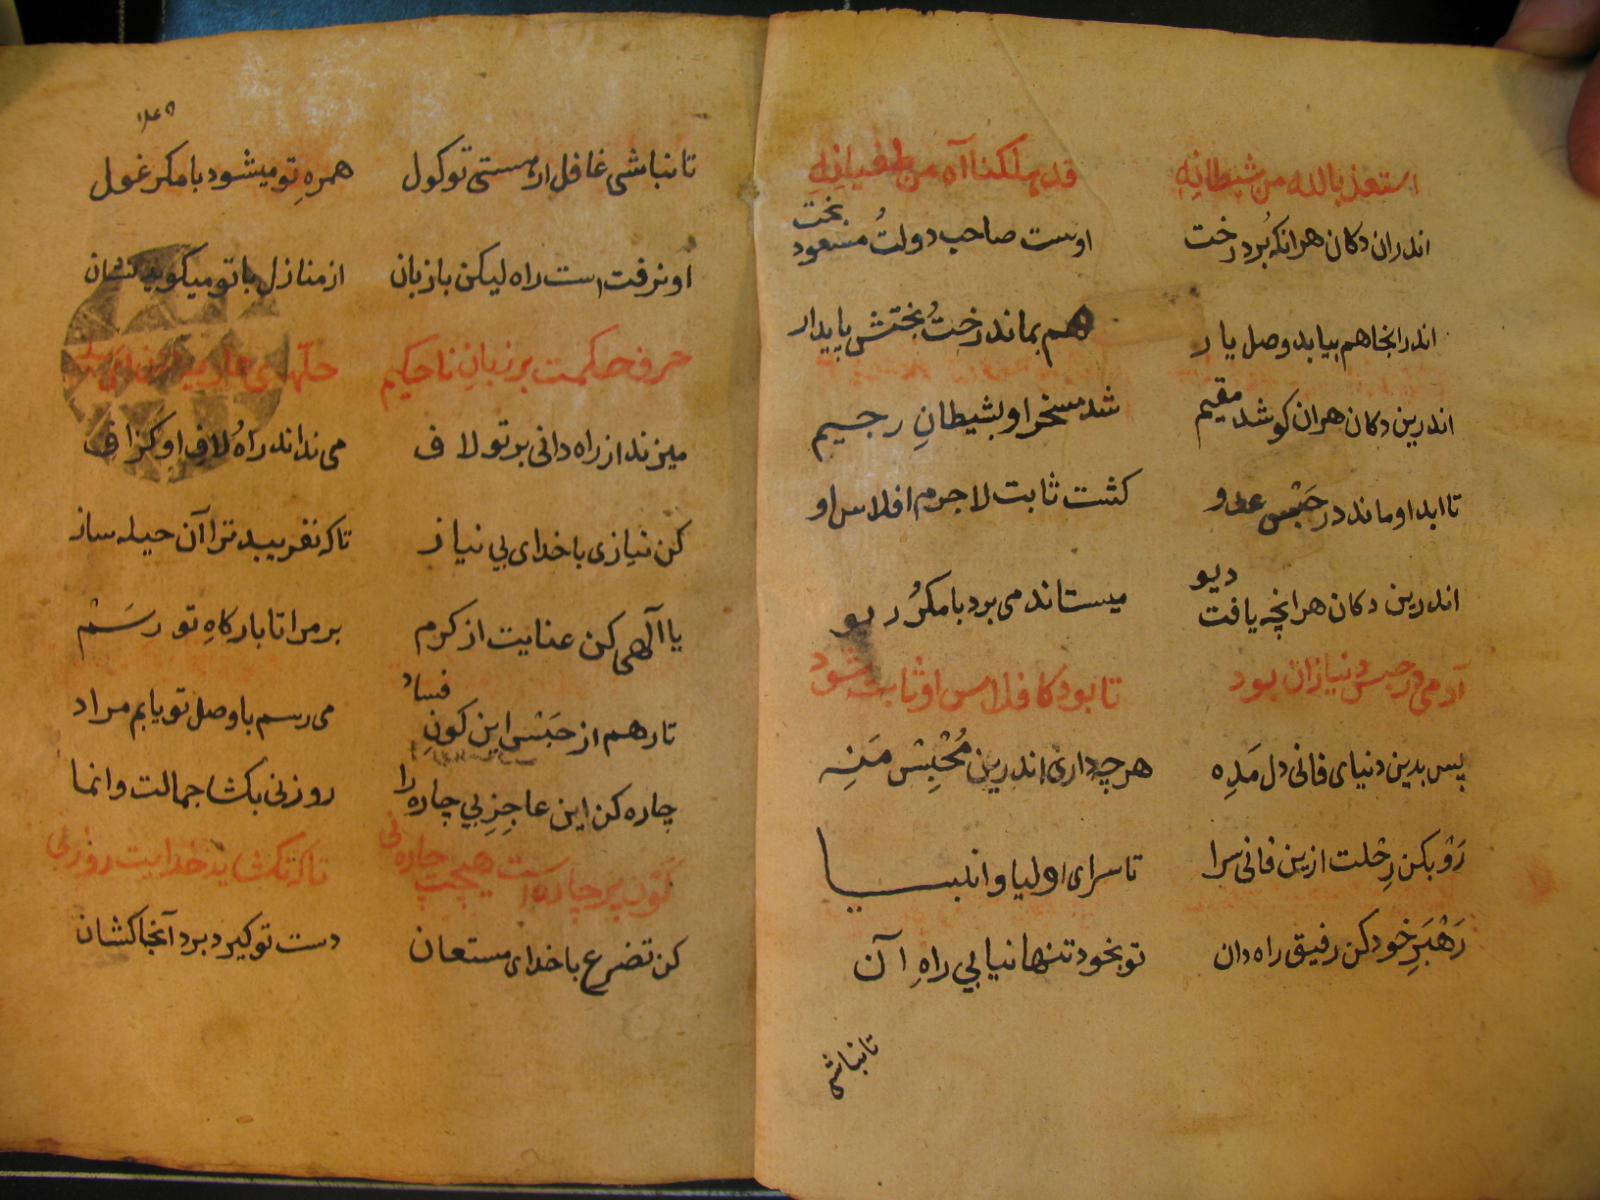 استعذ بالله من شیطانه قد هلکنا آه من طغیانه
اندران دکان هرانکه بُرد رخت اوست صاحب دولتُ مسعود بخت
اندرانجا هم بیابد وصل یار هم بماند رختُ بختش پایدار
اندرین دکان هران کو شد مقیم شد مسخر او بشیطانِ رجیم
تا ابد او ماند در حَبْسِ عدو کشت ثابت لاجرم افلاس او
اندرین دکان هرانچه یافت دیو میستاند می برد با مکرُ ریو
آدمی در حبس دنیا زان بود تا بود کافلاس او ثابت شود
پس بدین دنیای فانی دل مَدِه هر چه داری اندرین مَحْبِسْ مَنِه
رَوْ بکن رِحْلت ازین فانی سرا تا سرای اولیا و انبیا
رَهْبَرِ خود کن رفیق راه دان تو بخود تنها نیابی راهِ آن
تا نباشی
تا نباشی غافل از مستی تو کول همرهِ تو میشود با مکر غول
او نرفت است راه لیکن با زبان از منازل با تو میکوید نشان
حرف حکمت بر زبانِ ناحکیم حلّهای عاریت دان ای سلیم
میزند از راه دانی بر تو لاف می نداند راهُ لاف او کزاف
کن نیازی با خدای بی نیاز تا که نفریبد ترا آن حیله ساز
یا آلهی کن عنایت از کرم بر مرا تا بارکاهِ تو رسَمْ
تا رهم از حَبْسِ این کونِ فساد می رسم با وصل تو یابم مراد
چاره کن این عاجِزِ بی چاره را روزنی بکشا جمالت وانما
کَوْن پر چاره است هیچت چاره نی تا که نکشاید خدایت روزنی
کن تضرع با خدای مستعان دست تو کیرد برد آنجا کشان